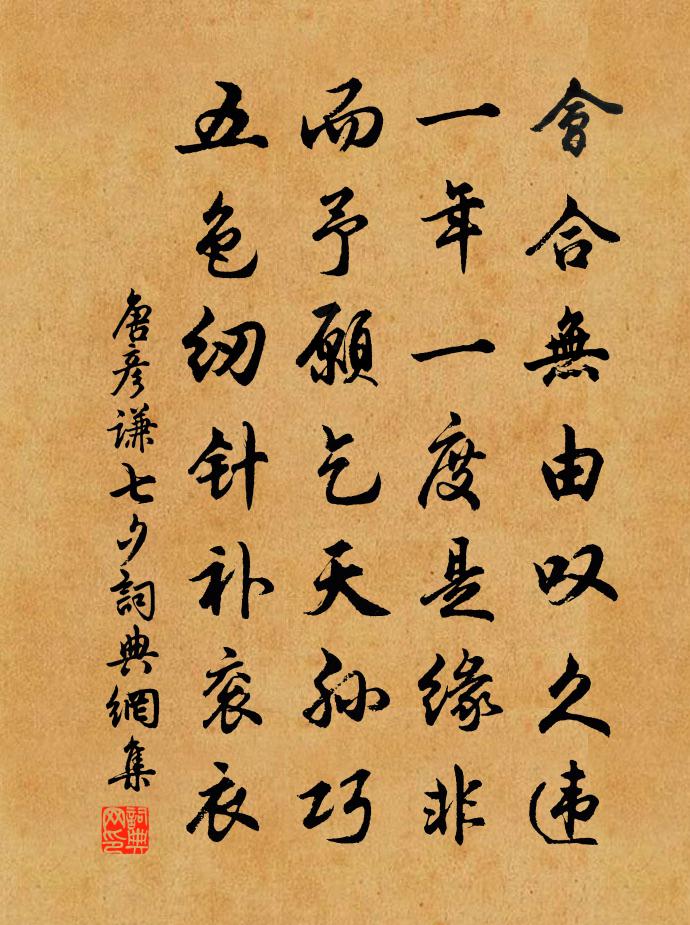 會合無由叹久违
一年一度是缘非
而予願乞天孙巧
五色纫针补衮衣
唐彦谦七夕詞典網集
詞典網印